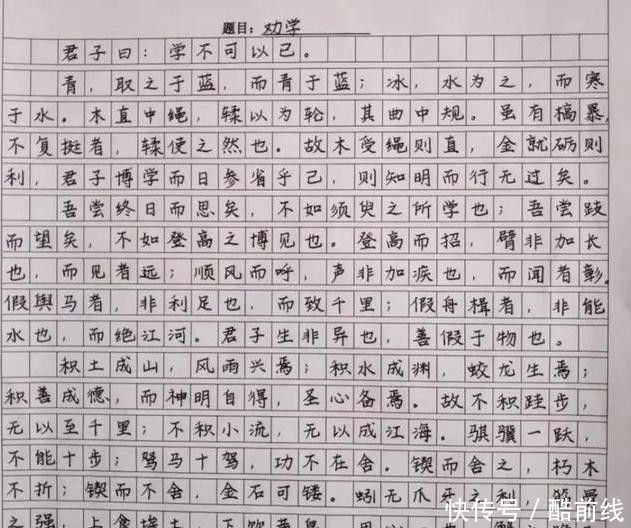 题目：劝学
君子曰：学不可以已。
青，取之于蓝，而青于蓝；冰，水为之，而寒
于水。木直中绳，輮以为轮，其曲中规。虽有槁暴，
不复挺者，輮使之然也。故木受绳则直，金就砺则
利，君子博学而日参省乎己，则知明而行无过矣。
吾尝终日而思矣，不如须臾之所学也；吾尝跂
而望矣，不如登高之博见也。登高而招，臂非加长
也，而见者远；顺风而呼，声非加疾也，而闻者彰。
假舆马者，非利足也，而致千里；假舟楫者，非能
水也，而绝江河。君子生非异也，善假于物也。
积土成山，风雨兴焉；积水成渊，蛟龙生焉；
积善成德，而神明自得，圣心备焉。故不积跬步，
无以至千里；不积小流，无以成江海。骐骥一跃，
不能十步；驽马十驾，功不在舍。锲而舍之，朽木
不折；锲而不舍，金石可镂。蚓无爪牙之利，筋骨
之强，上食埃土，下饮黄泉
快传号／酷前线